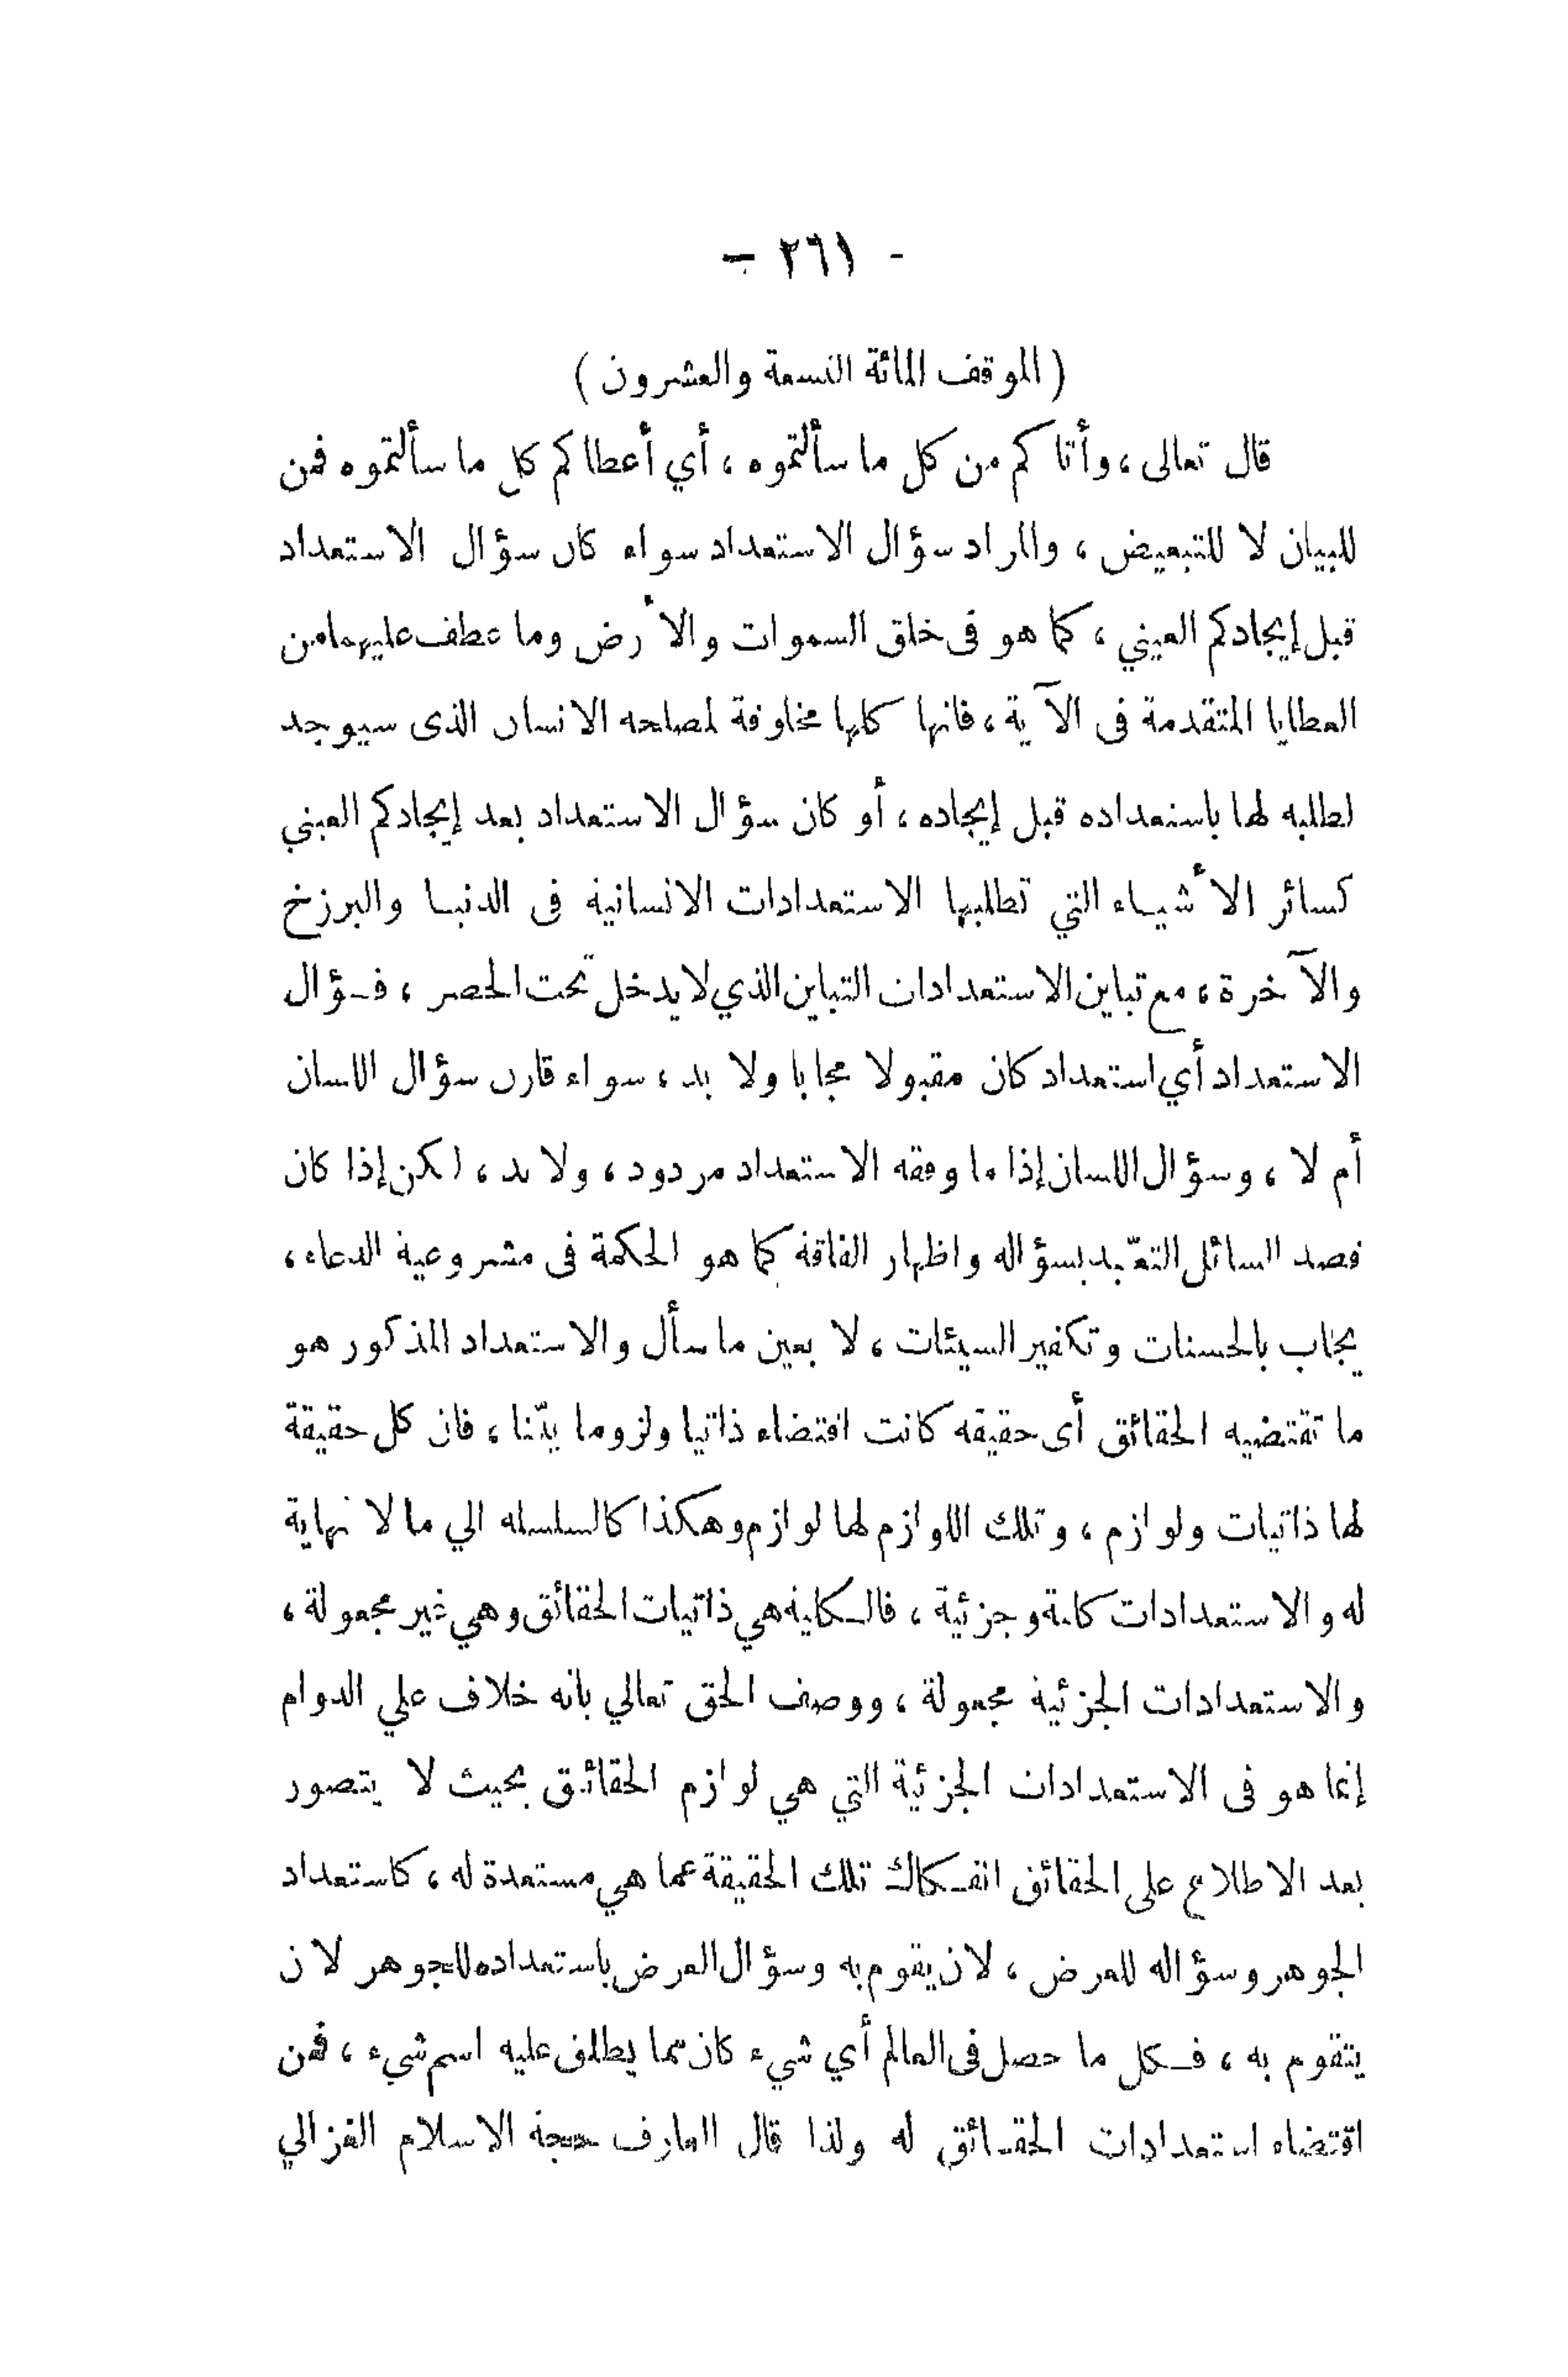 - ٢٦١ -
( الموقف المائة التسعة والعشرون )
قال تعالى ، وأتاكم من كل ما سألتموه ، أي أعطاكم كل ما سألتموه فمن
للبيان لا للتبعيض ، والمراد سؤال الاستعداد سواء كان سؤال الاستعداد
قبل إيجادكم العيني ، كما هو فى خلق السموات والأرض وما عطف عليهما من
العطايا المتقدمة فى الآية ، فانها كلها مخلوقة لمصلحه الانسان الذى سيوجد
لطلبه لها باستعداده قبل إيجاده ، أو كان سؤال الاستعداد بعد إيجادكم العيني
كسائر الأشياء التي تطلبها الاستعدادات الانسانية فى الدنيا والبرزخ
والآخرة ، مع تباين الاستعدادات التباين الذي لا يدخل تحت الحصر ، فسؤال
الاستعداد أي استعداد كان مقبولا مجابا ولا بد ، سواء قارن سؤال اللسان
أم لا ، وسؤال اللسان إذا ما وفقه الاستعداد مردود ، ولا بد ، لكن إذا كان
قصد السائل التعبّد بسؤاله واظهار الفاقة كما هو الحكمة فى مشروعية الدعاء ،
يجاب بالحسنات وتكفير السيئات ، لا بعين ما سأل والاستعداد المذكور هو
ما تقتضيه الحقائق أى حقيقه كانت اقتضاء ذاتيا ولزوما بيّنا ، فان كل حقيقة
لها ذاتيات ولوازم ، وتلك اللوازم لها لوازم وهكذا كالسلسله الي ما لا نهاية
له والاستعدادات كلية وجزئية ، فالكليه هي ذاتيات الحقائق وهي غير مجعولة ،
والاستعدادات الجزئية مجعولة ، ووصف الحق تعالي بانه خلاف علي الدوام
إنما هو فى الاستعدادات الجزئية التي هي لوازم الحقائق بحيث لا يتصور
بعد الاطلاع على الحقائق انفكاك تلك الحقيقة عما هي مستعدة له ، كاستعداد
الجوهر وسؤاله للعرض ، لان يقوم به وسؤال العرض باستعداده للجوهر لان
يتقوم به ، فكل ما حصل فى العالم أي شيء كان مما يطلق عليه اسم شيء ، فمن
اقتضاء استعدادات الحقائق له ولذا قال العارف حجة الاسلام الغزالي